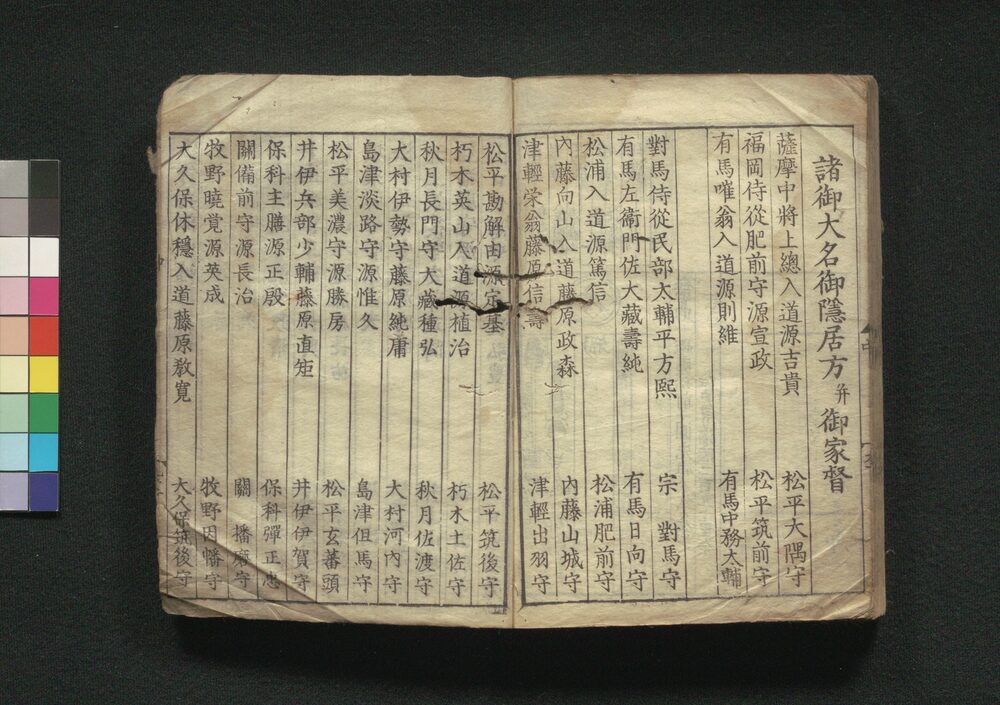 諸御大名御隱居方 并 御家督
薩摩中將上總入道源吉貴 松平大隅守
福岡侍從肥前守源宣政 松平筑前守
有馬唯翁入道源則維 有馬中務太輔
對馬侍從民部太輔平方熙 宗 對馬守
有馬左衞門佐大藏壽純 有馬日向守
松浦入道源篤信 松浦肥前守
內藤向山入道藤原政森 內藤山城守
津輕栄翁藤原信壽 津輕出羽守
松平勘解由源定基 松平筑後守
朽木英山入道源植治 朽木土佐守
秋月長門守大藏種弘 秋月佐渡守
大村伊勢守藤原純庸 大村河內守
島津淡路守源惟久 島津但馬守
松平美濃守源勝房 松平玄蕃頭
井伊兵部少輔藤原直矩 井伊伊賀守
保科主膳源正殷 保科彈正忠
關備前守源長治 關 播磨守
牧野曉覚源英成 牧野因幡守
大久保休穩入道藤原教寬 大久保筑後守